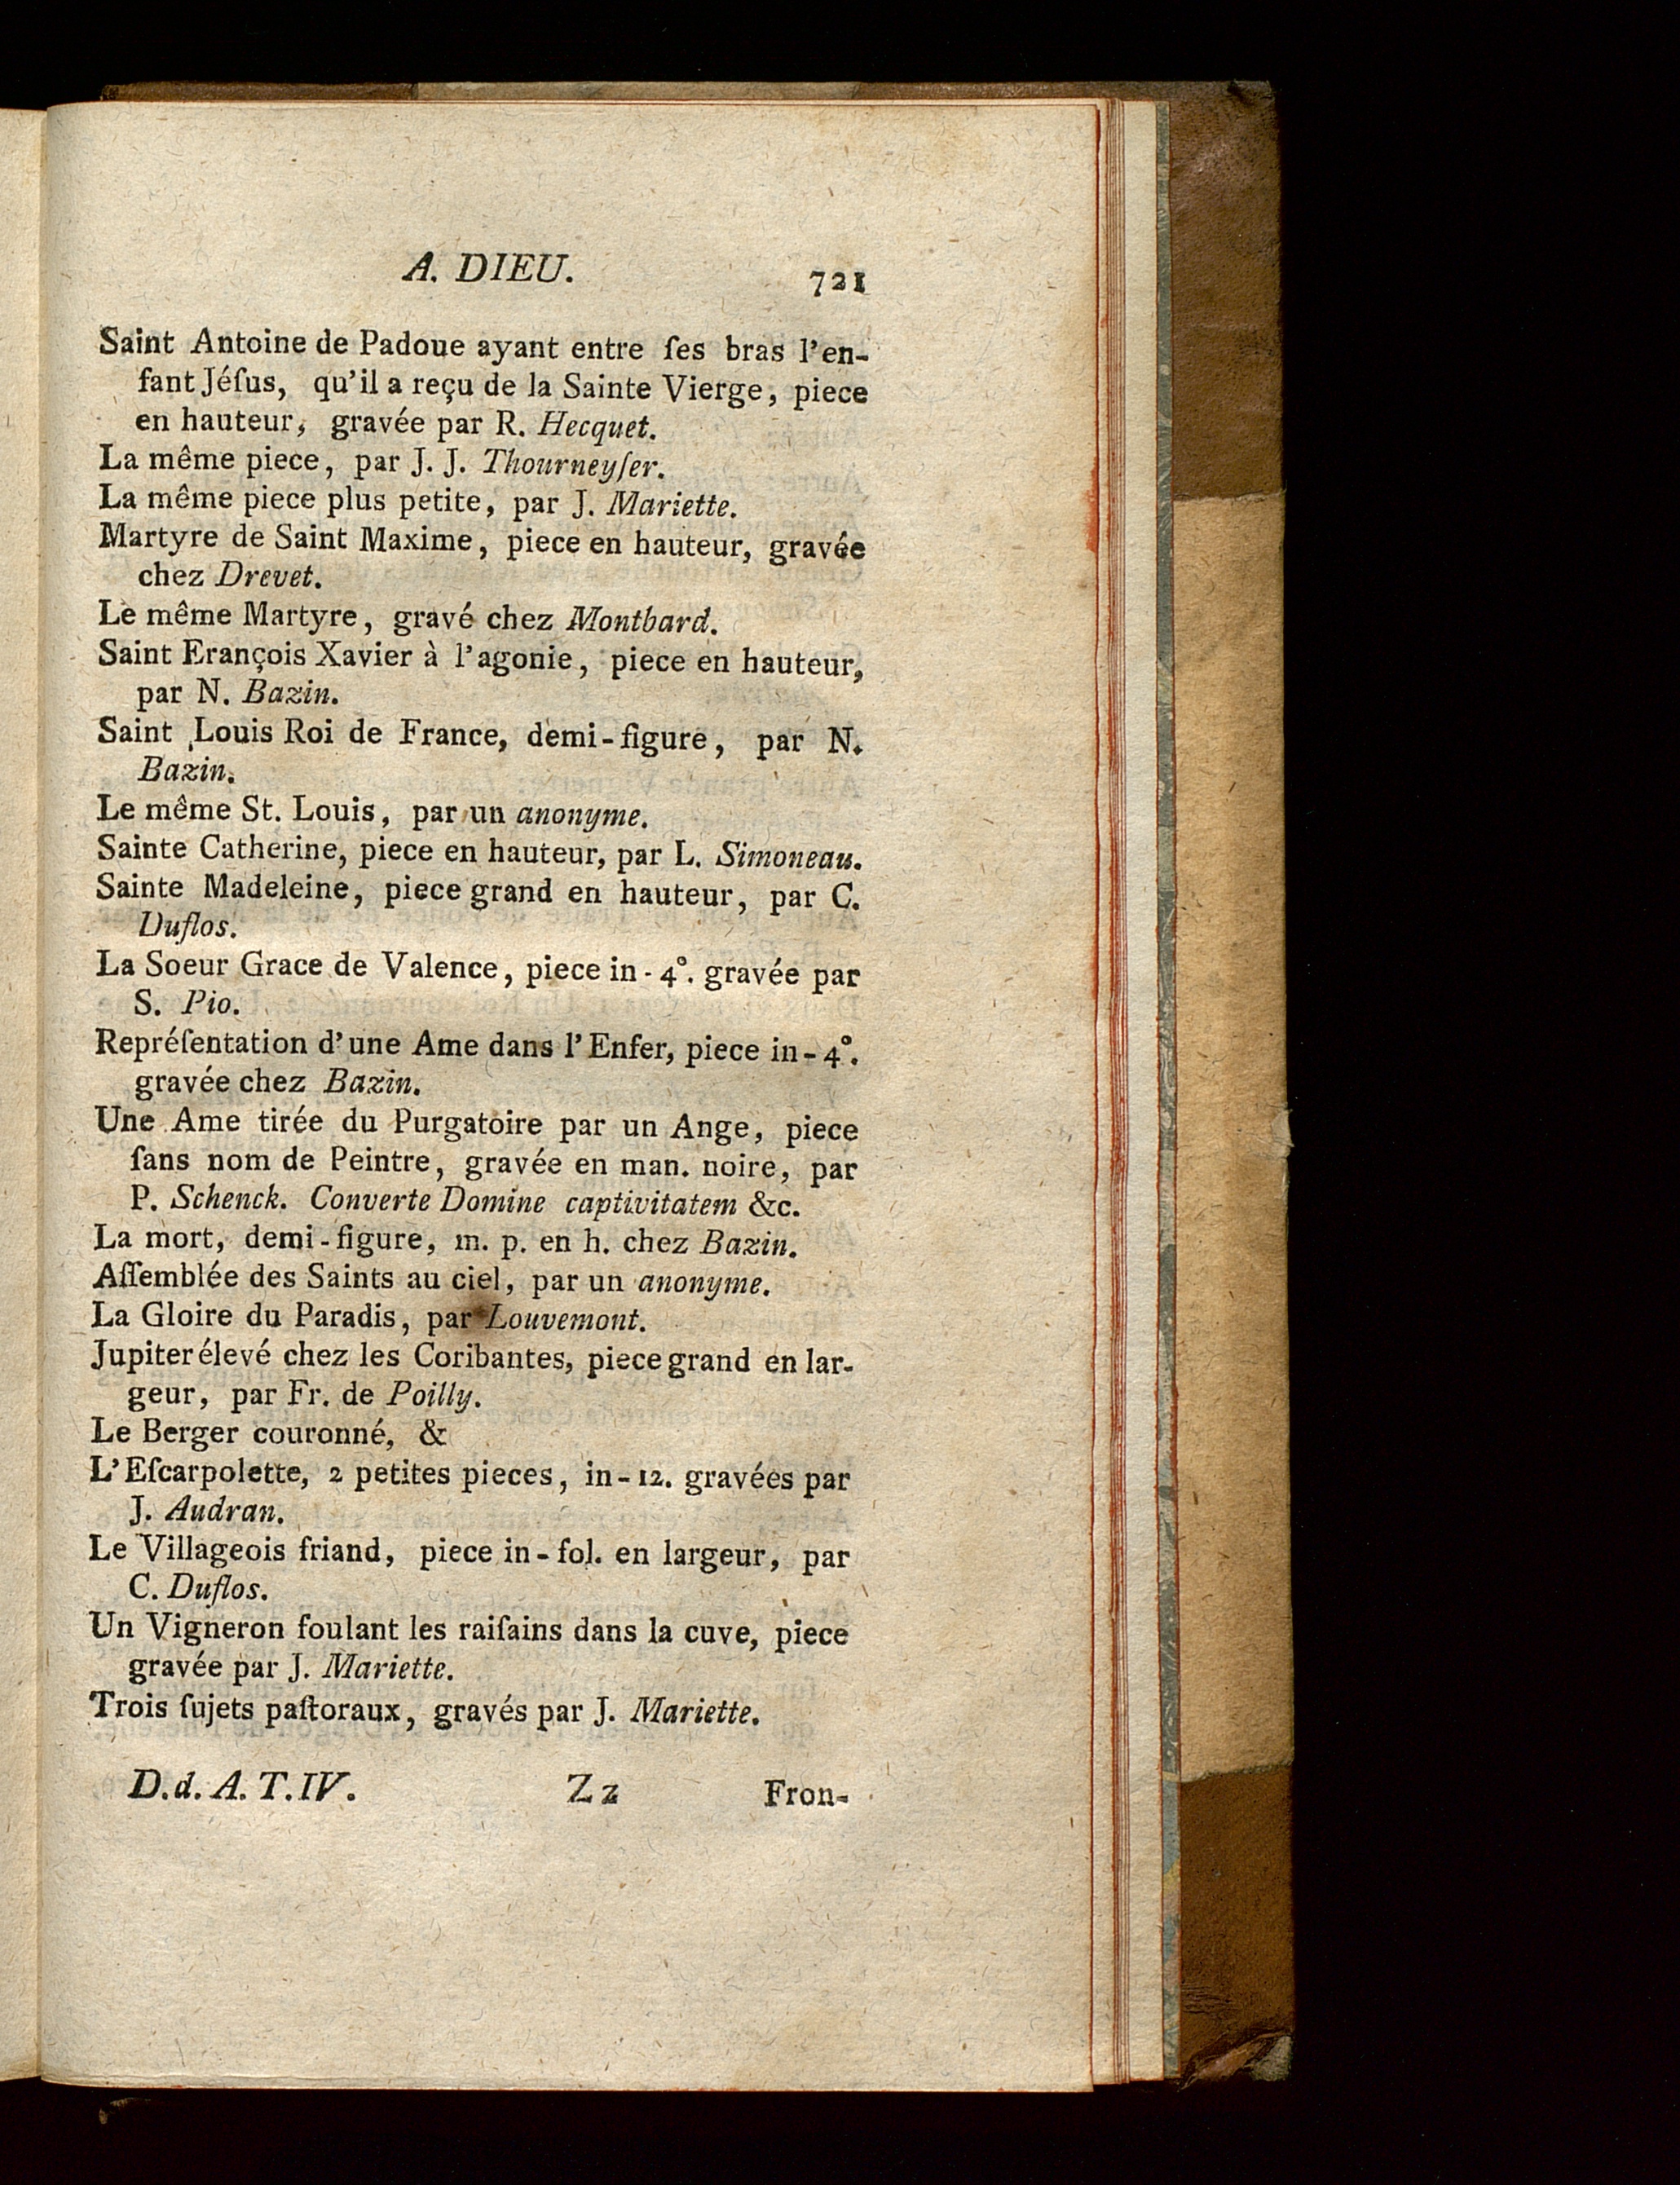 A. DIEU.
721
Saint Antoine de Padoue ayant entre ſes bras l'en-
fant Jéſus, qu'il a reçu de la Sainte Vierge, piece
en hauteur, gravée par R. Hecquet.
La même piece, par J. J. Thourneyſer.
La même piece plus petite, par J. Mariette.
Martyre de Saint Maxime, piece en hauteur, gravée
chez Drevet.
Le même Martyre, gravé chez Montbard.
Saint Erançois Xavier à l'agonie, piece en hauteur,
par N. Bazin.
Saint Louis Roi de France, demi-figure, par N.
Bazin.
Le même St. Louis, par un anonyme.
Sainte Catherine, piece en hauteur, par L. Simoneau.
Sainte Madeleine, piece grand en hauteur, par C.
Duflos.
La Soeur Grace de Valence, piece in-4°. gravée par
S. Pio.
Repréſentation d'une Ame dans l'Enfer, piece in-4°.
gravée chez Bazin.
Une Ame tirée du Purgatoire par un Ange, piece
ſans nom de Peintre, gravée en man. noire, par
P. Schenck. Converte Domine captivitatem &c.
La mort, demi-figure, m. p. en h. chez Bazin.
Aſſemblée des Saints au ciel, par un anonyme.
La Gloire du Paradis, par Louvemont.
Jupiter élevé chez les Coribantes, piece grand en lar-
geur, par Fr. de Poilly.
Le Berger couronné, &
L'Eſcarpolette, 2 petites pieces, in-12. gravées par
J. Audran.
Le Villageois friand, piece in-fol. en largeur, par
C. Duflos.
Un Vigneron foulant les raiſains dans la cuve, piece
gravée par J. Mariette.
Trois ſujets paſtoraux, gravés par J. Mariette.
D. d. A. T. IV. Zz Fron-